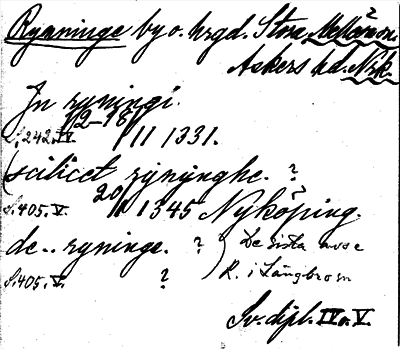 Rynninge by o. hrgd. Stora Mellösa sn.
Askers hd. Nrk.
Jn ryningi.
S. 242. IV. 12–18/11 1331.
(scilicet rynynghe. ?
S. 405. V. 20/11 1345 Nyköping. ?
de .. ryninge. ? ) De sista avse
S. 405. V. ? R. i Längbro sn
Sv. dipl. IV o. V.